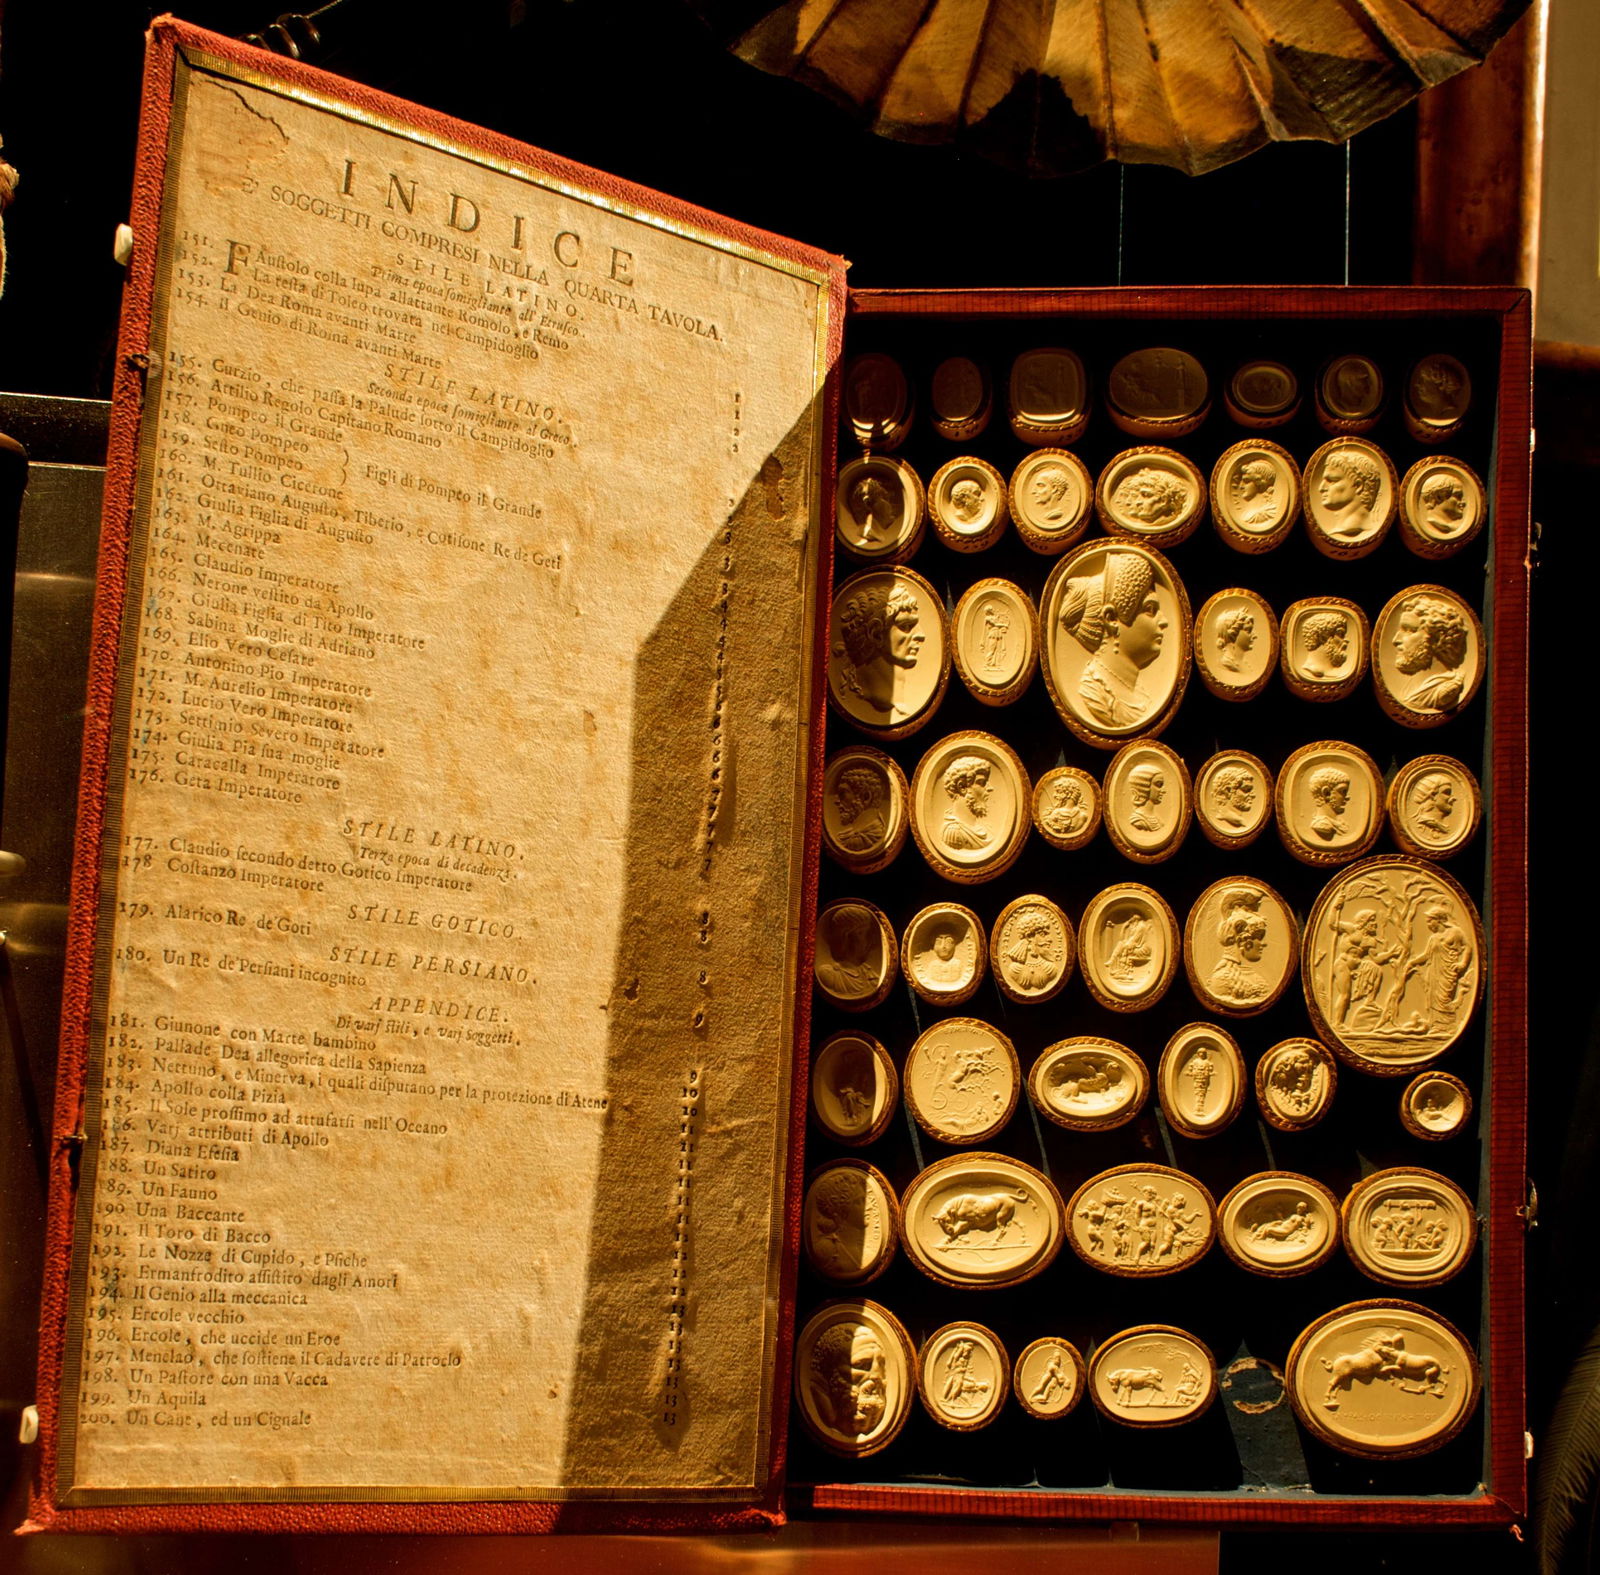 INDICE
E' SOGGETTI COMPRESI NELLA QUARTA TAVOLA.
STILE LATINO.
Prima epoca somigliante all' Etrusco.
151. FAustolo colla lupa allattante Romolo, e Remo
152. La testa di Toleo trovata nel Campidoglio
153. La Dea Roma avanti Marte
154. Il Genio di Roma avanti Marte
STILE LATINO.
Seconda epoca somigliante al Greco.
155. Curzio, che passa la Palude sotto il Campidoglio
156. Attilio Regolo Capitano Romano
157. Pompeo il Grande
158. Gneo Pompeo
159. Sesto Pompeo } Figli di Pompeo il Grande
160. M. Tullio Cicerone
161. Ottaviano Augusto, Tiberio, e Cotisone Re de Geti
162. Giulia Figlia di Augusto
163. M. Agrippa
164. Mecenate
165. Claudio Imperatore
166. Nerone vestito da Apollo
167. Giulia Figlia di Tito Imperatore
168. Sabina Moglie di Adriano
169. Elio Vero Cesare
170. Antonino Pio Imperatore
171. M. Aurelio Imperatore
172. Lucio Vero Imperatore
173. Settimio Severo Imperatore
174. Giulia Pia sua moglie
175. Caracalla Imperatore
176. Geta Imperatore
STILE LATINO.
Terza epoca di decadenza.
177. Claudio secondo detto Gotico Imperatore
178 Costanzo Imperatore
STILE GOTICO.
179. Alarico Re de' Goti
STILE PERSIANO.
180. Un Re de' Persiani incognito
APPENDICE.
Di varj stili, e varj Soggetti.
181. Giunone con Marte bambino
182. Pallade Dea allegorica della Sapienza
183. Nettuno, e Minerva, i quali disputano per la protezione di Atene
184. Apollo colla Pizia
185. Il Sole prossimo ad attufarsi nell' Oceano
186. Varj attributi di Apollo
187. Diana Efesia
188. Un Satiro
189. Un Fauno
190 Una Baccante
191. Il Toro di Bacco
192. Le Nozze di Cupido, e Psiche
193. Ermanfrodito assistito dagli Amori
194. Il Genio alla meccanica
195. Ercole vecchio
196. Ercole, che uccide un Eroe
197. Menelao, che sostiene il Cadavere di Patroclo
198. Un Pastore con una Vacca
199. Un Aquila
200. Un Cane, ed un Cignale